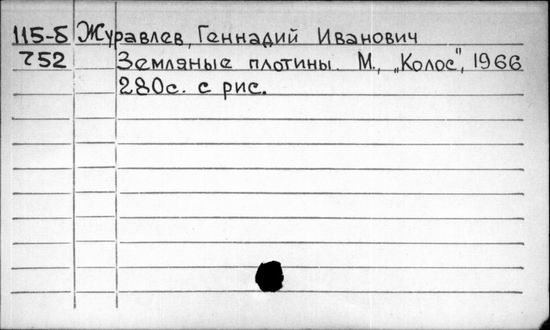 115-8 Журавлев, Геннадий Иванович
752 Земляные плотины. М., „Колос", 1966
280с. с рис.